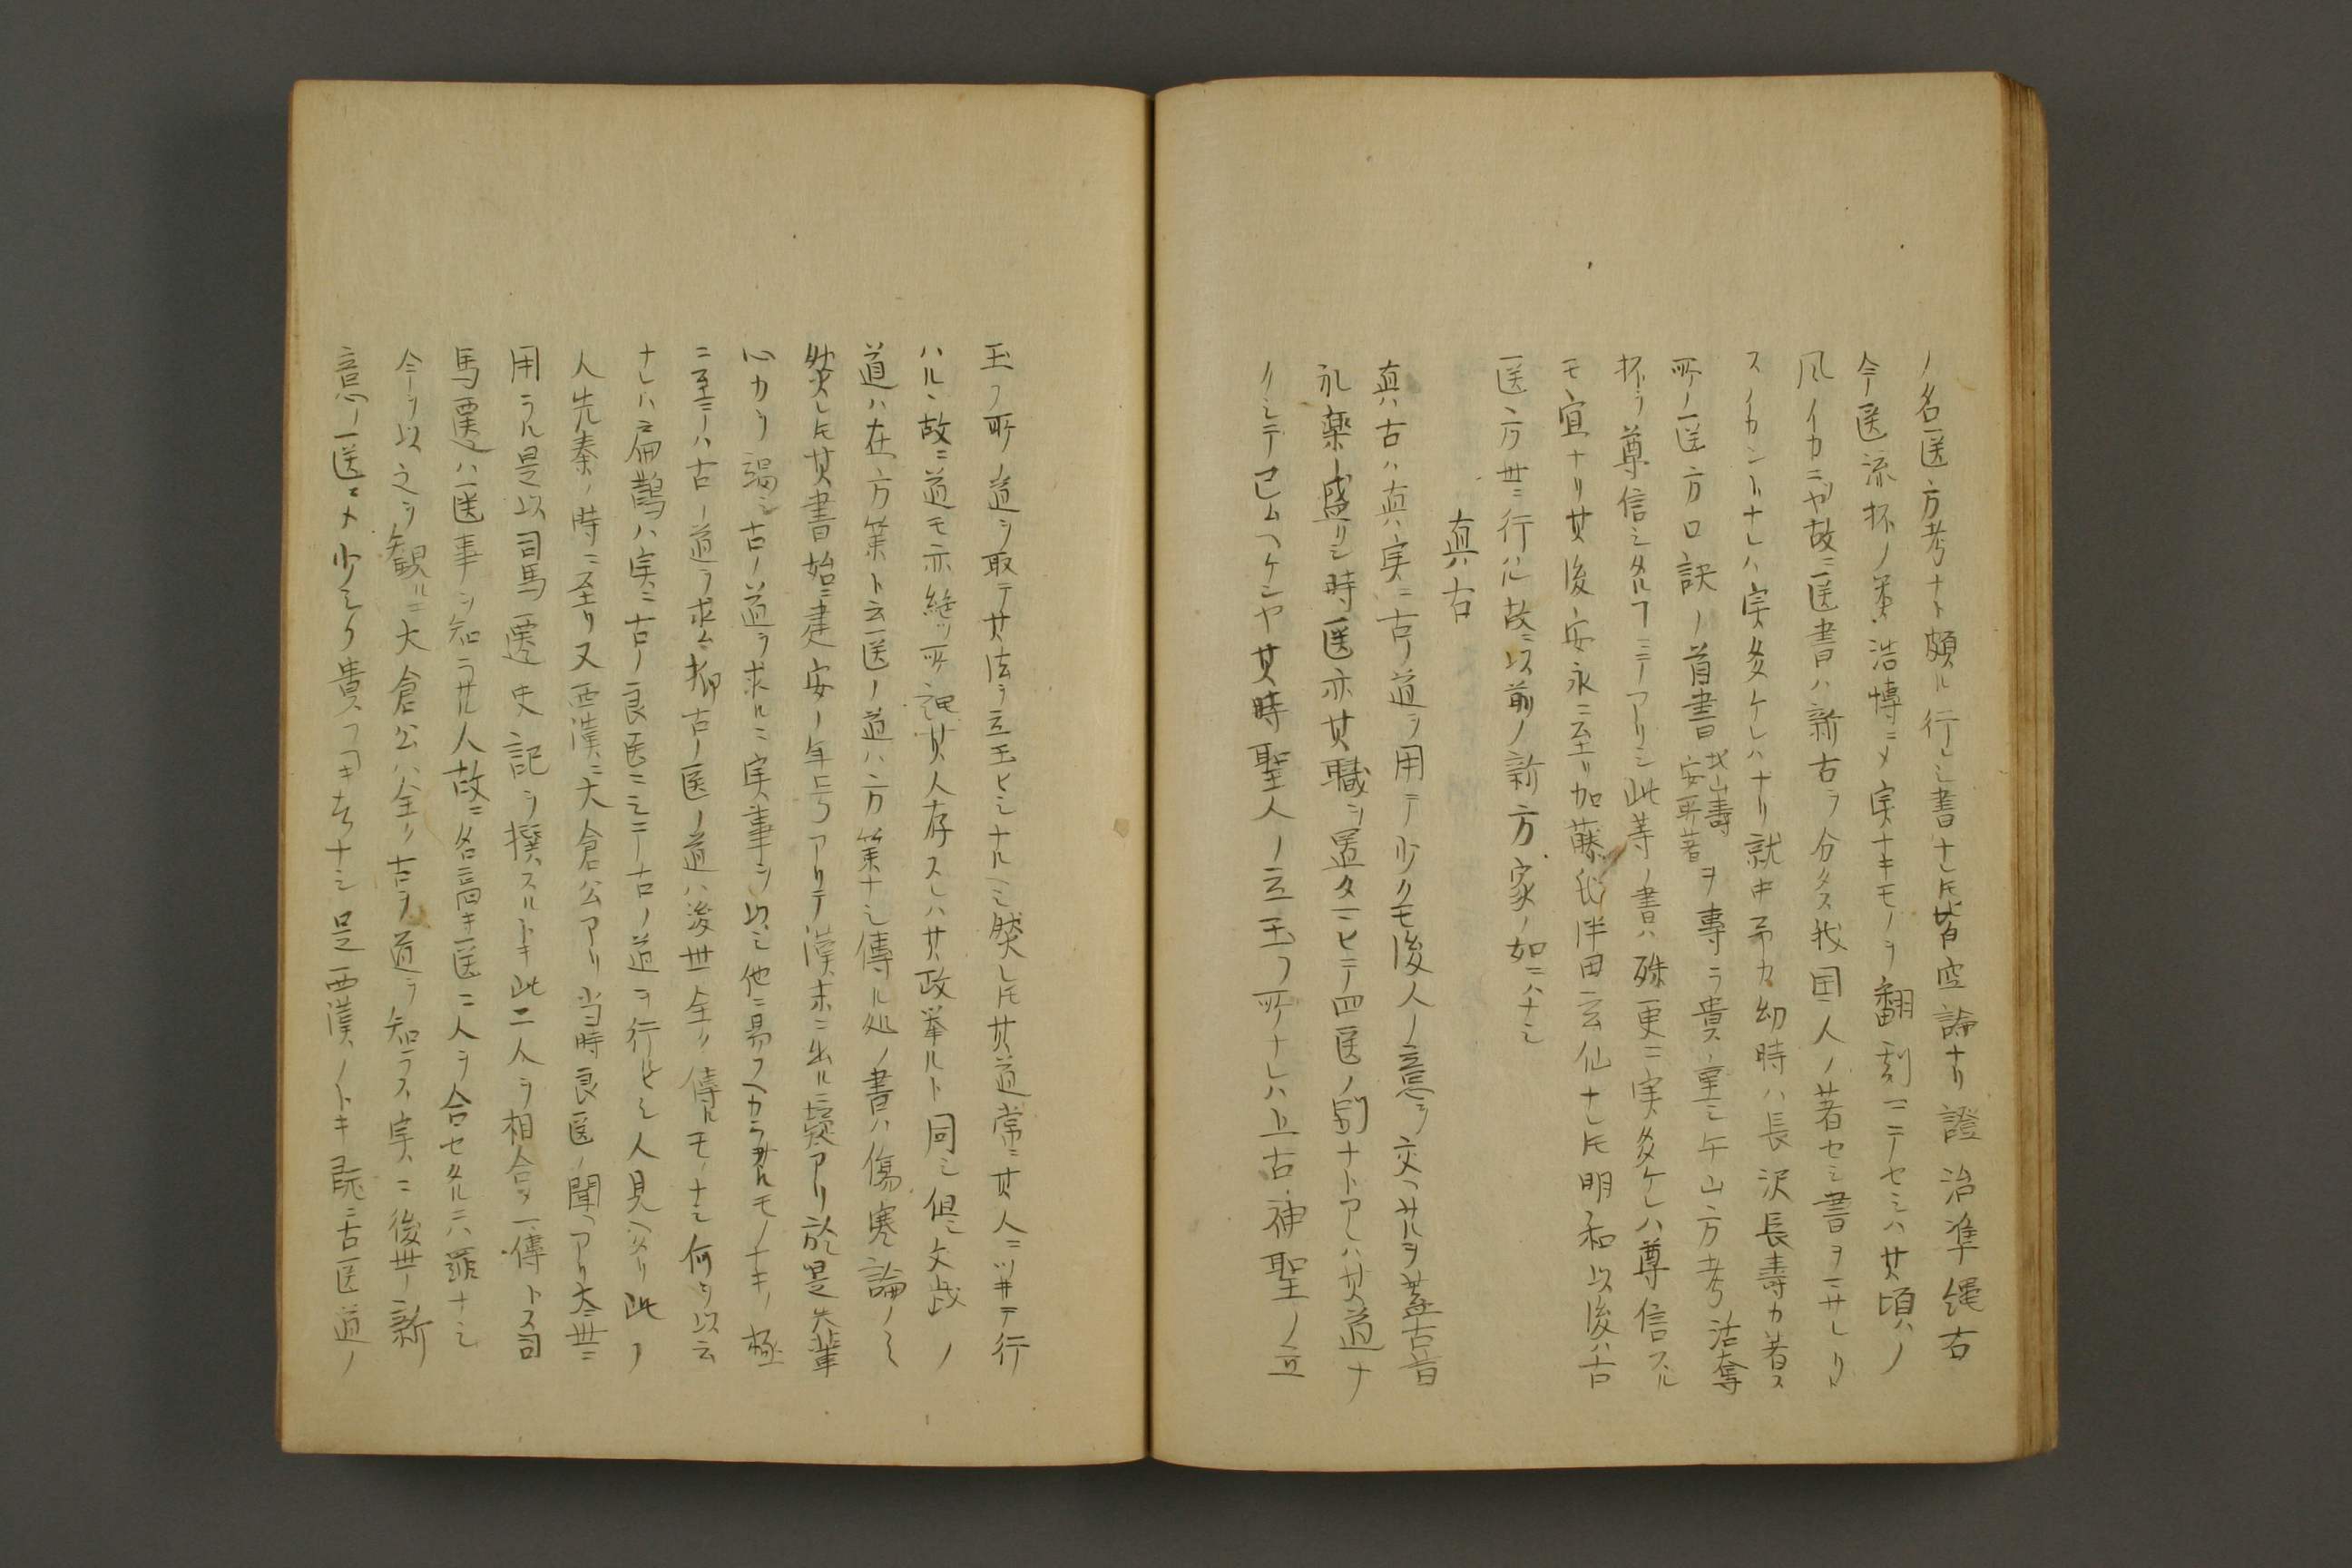 ノ名医方考ナト頗ル行レシ書ナレ𪜈皆空論ナリ證治準縄古
今医流杯ノ策浩博ニメ実ナキモノヲ翻刻ニテセシハ其頃ノ
風イカニヤ故ニ医書ハ新古ヲ分タス我国人ノ著セシ書ヲ
スノカントナレハ実多ケレハナリ就中予カ幼時ハ長沢長寿カ著ス
所ノ医方口訣ノ首書北山寿安所著ヲ専ラ貴重シ牛山方考活套
杯ヲ尊信シタルヿニテアリシ此等ノ書ハ殊更ニ実多ケレハ尊信スル
モ宜ナリ其後安永ニ至リ加藤氏伴田云仙ナレ𪜈明和以後ハ古
医方世ニ行ル故ニ以前ノ新方家ノ如ニハナシ
真古
真古ハ真実ニ古ノ道ヲ用テ少クモ後人ノ意ヲ交ヘサルヲ蓋古昔
礼楽盛リシ時医亦其職ヲ置タマヒテ四医ノ別ナトアレハ其道ナ
クシテ已ムヘケンヤ其時聖人ノ立玉フ所ナレハ上古神聖ノ立
玉フ所ノ道ヲ取テ其法ヲ立玉ヒシナルヘシ然レ𪜈其道常ニ其人ニツヰテ行
ハル故ニ道モ亦絶ツ所謂其人存スレハ其政挙ルト同シ但シ文武ノ
道ハ在方策ト云医ノ道ハ方策ナシ傳ル処ノ書ハ傷寒論ノミ
然レ𪜈其書始ニ建安ノ年号アリテ漢末ニ出ル疑アリ於是先輩
心カヲ渇シ古ノ道ヲ求ルニ実事ヲ以シ他ニ易フヘカラサルモノナキノ極
ニ至テハ古ノ道ヲ求ム抑古ノ医ノ道ハ後世全ク傳ルモノナシ何ヲ以云
ナレハ扁鵲ハ実ニ古ノ良医ニシテ古ノ道ヲ行ヒシ人見ヘタリ此ノ
人先秦ノ時ニ至リ又西漢ニ大倉公アリ当時良医ノ聞ヘアリ大ニ世ニ
用ラル是以司馬遷史記ヲ撰スルトキ此二人ヲ相合メ一傳トス司
馬遷ハ医事ヲ知ラサル人故ニ名高キ医二人ヲ合セタルニハ罪ナシ
今ヲ以之ヲ観ルニ大倉公ハ全ク古ヲ道ヲ知ラス実ニ後世ノ新
意ノ医ニメ少シク貴フヘキ者ナシ是西漢ノトキ既ニ古医道ノ